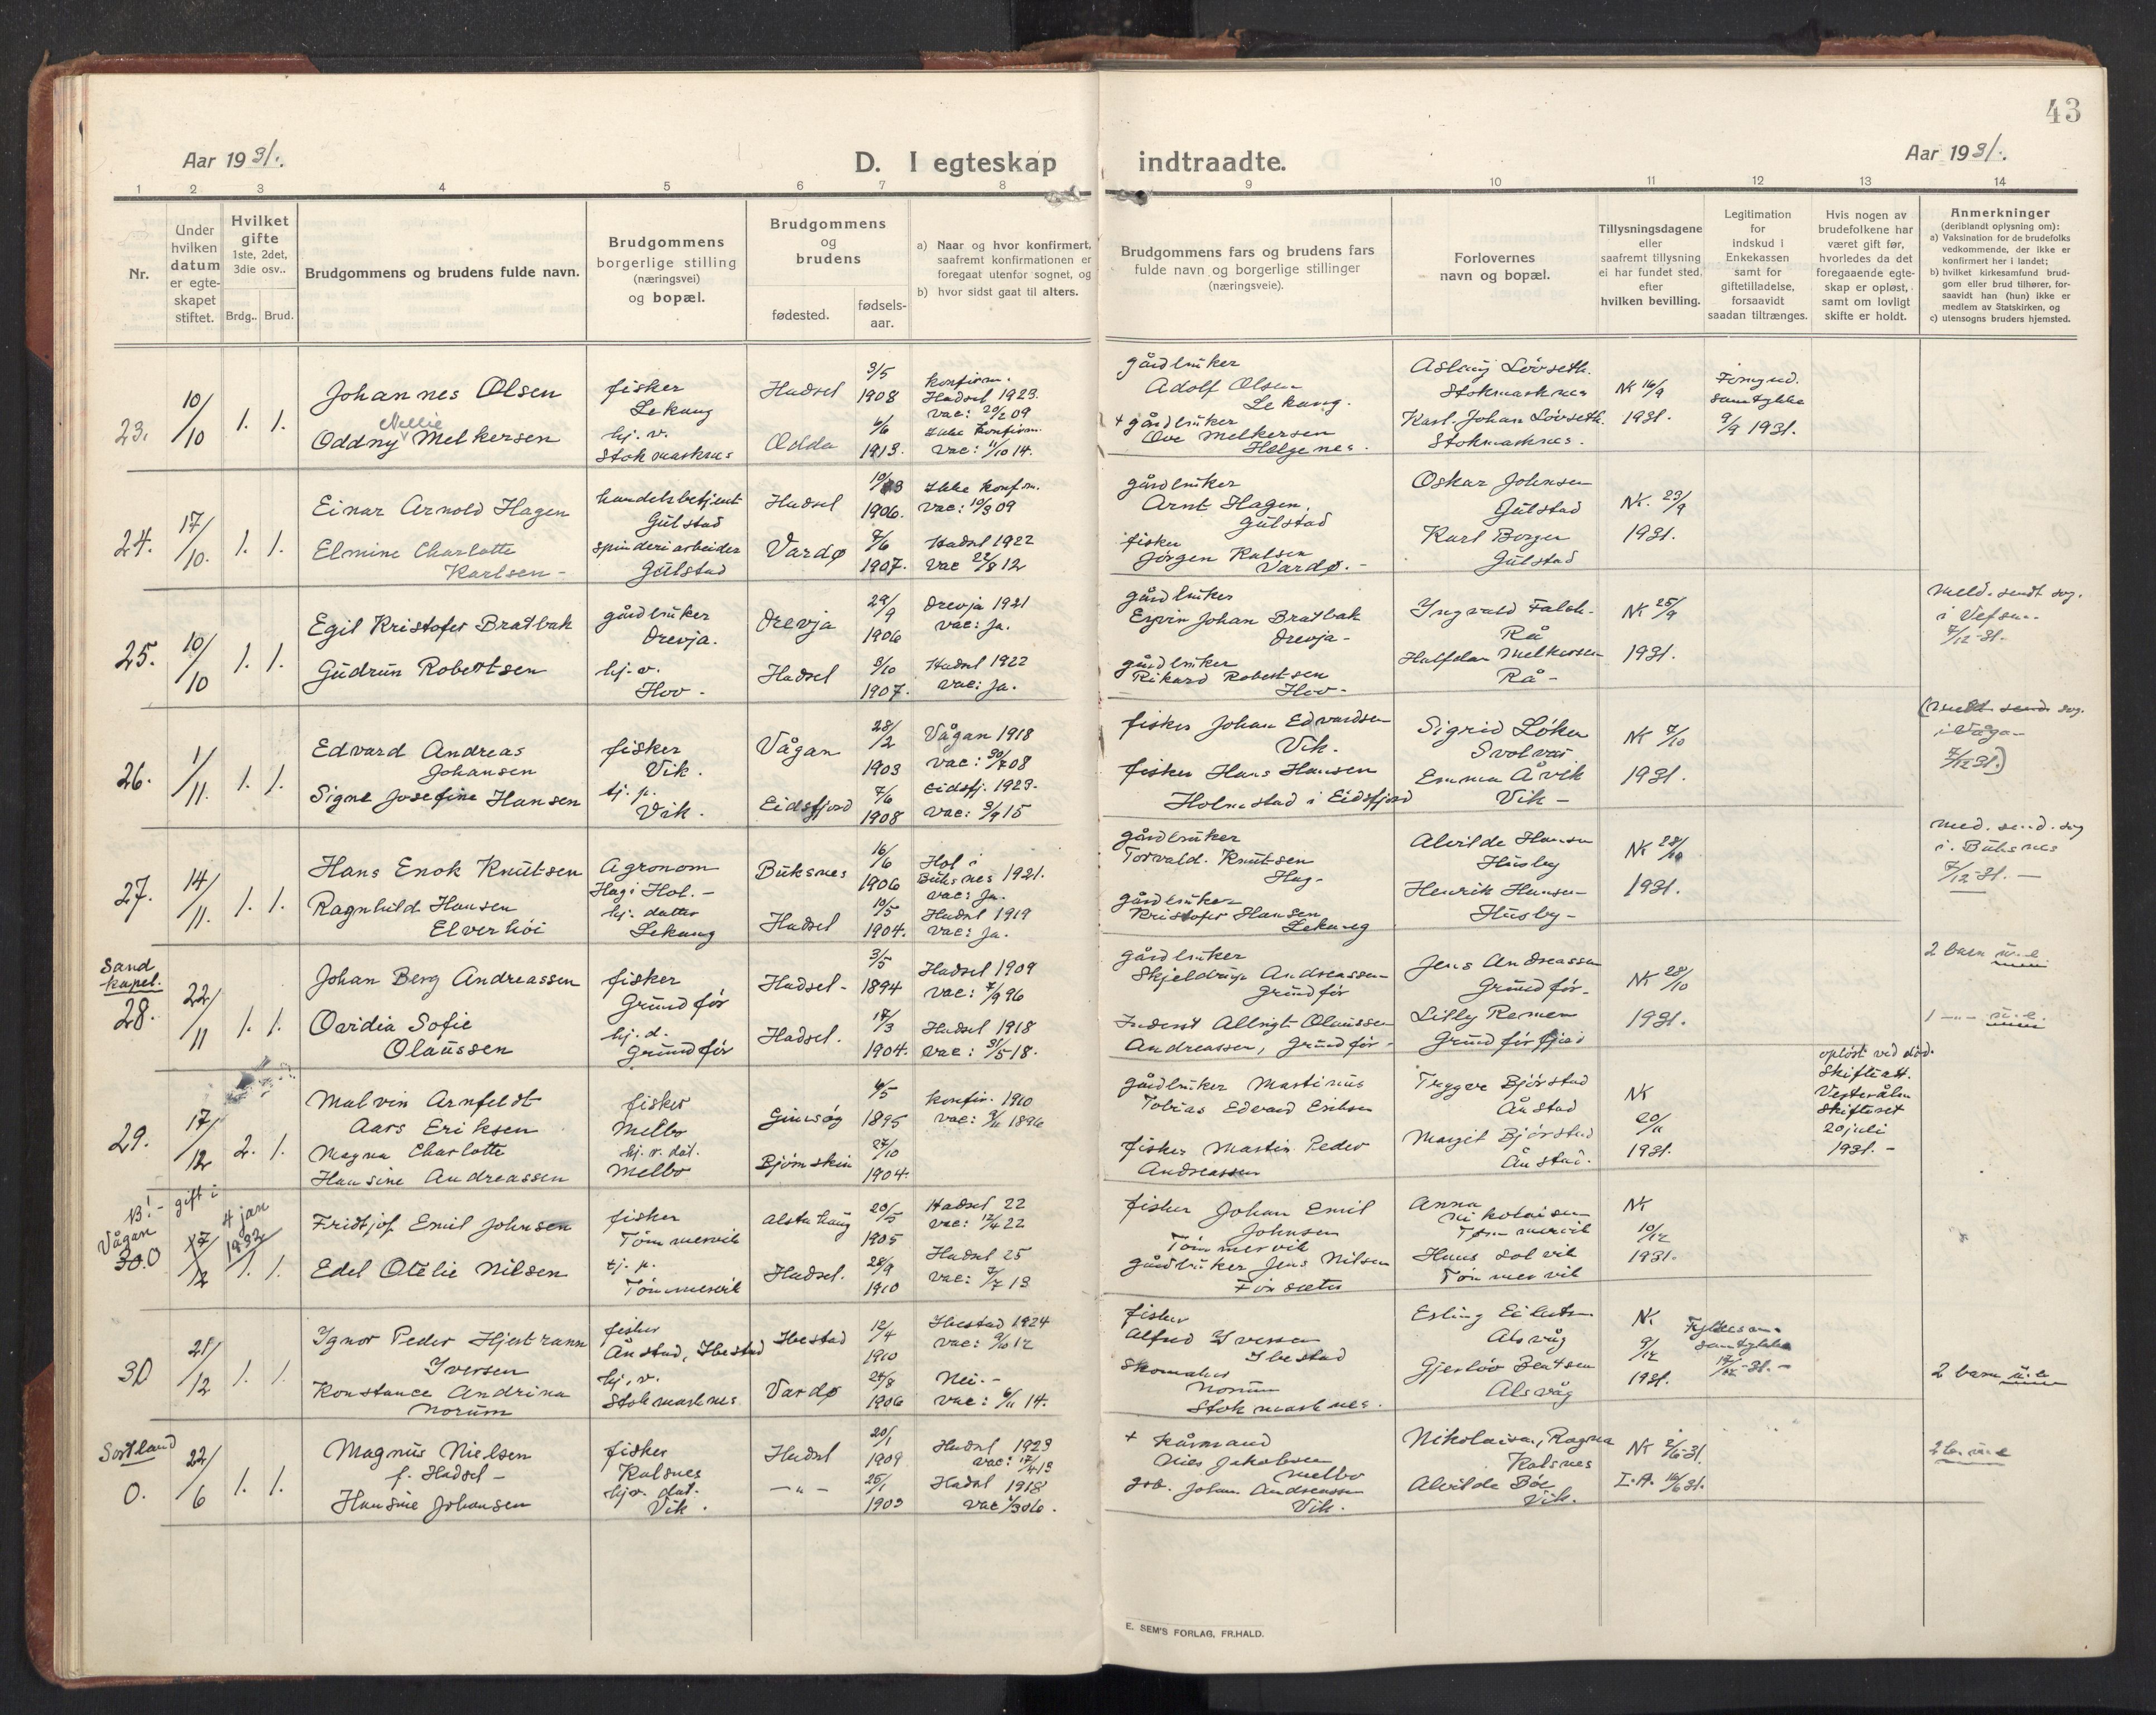 43
Aar 1931.
D. I egteskap indtraadte.
Aar 1931.
1 2 3 4 5 6 7 8 9 10 11 12 13 14
Nr.
Under
hvilken
datum
er egte-
skapet
stiftet.
Hvilket
gifte
1ste, 2det,
3die osv..
Brdg.. Brud.
Brudgommens og brudens fulde navn.
Brudgommens
borgerlige stilling
(næringsvei)
og bopæl.
Brudgommens
og
brudens
fødested.
fødsels-
aar.
a) Naar og hvor konfirmert,
saafremt konfirmationen er
foregaat utenfor sognet, og
b) hvor sidst gaat til alters.
Brudgommens fars og brudens fars
fulde navn og borgerlige stillinger
(næringsveie).
Forlovernes
navn og bopæl.
Tillysningsdagene
eller
saafremt tillysning
ei har fundet sted,
efter
hvilken bevilling.
Legitimation
for
indskud i
Enkekassen
samt for
giftetilladelse,
forsaavidt
saadan tiltrænges.
Hvis nogen av
brudefolkene har
været gift før,
hvorledes da det
foregaaende egte-
skap er opløst,
samt om lovligt
skifte er holdt.
Anmerkninger
(deriblandt oplysning om):
a) Vaksination for de brudefolks
vedkommende, der ikke er
konfirmert her i landet;
b) hvilket kirkesamfund brud-
gom eller brud tilhører, for-
saavidt han (hun) ikke er
medlem av Statskirken, og
c) utensogns bruders hjemsted.
23.
10/10
1. 1.
Johannes Olsen
Nellie
Oddny Melkersen
fisker
Lekang
hj. v.
Stokmarknes
Hadsel
Odda
3/5
1908
1913.
konfirm.
Hadsel 1923.
vac: 20/2 09
Ikke konfirm.
vac: 11/10 14.
gårdbruker
Adolf Olsen
Lekang.
+ gårdbruker
Ove Melkersen
Helgenes.
Aslaug Lövseth.
Stokmarknes
Karl Johan Lövseth.
Stokmarknes.
NK 16/9
1931.
samtykke
9/9 1931.
24.
17/10.
1. 1.
Einar Arnold Hagen
Elmine Charlotte
Karlsen -
handelsbetjent
Gülstad
spinderiarbeider
Gülstad
Hadsel
Vardø
1906.
7/6
1907.
Ikke konfirm.
vac: 10/9 09
Hadsel 1922
vac 22/8 12
gårdbruker
Arnt Hagen,
Gülstad
fisker
Jörgen Kalsen
Vardø. -
Oskar Johnsen
Gülstad
Karl Borgen
Gülstad
NK. 23/9
1931.
25.
10/10
1. 1.
Egil Kristofer Bratbak
Gudrün Robertsen
gårdbruker
Drevja.
hj. v.
Hov -
Drevja
Hadsel
29/9
1906
9/10
1907.
Drevja 1921
vac: ja.
Hadsel 1922
vac: ja.
gårdbruker
Ervin Johan Bratbak
Drevja -
gårdbruker
Rikard Robertsen
Hov -
Ingvald Falch -
Rå
Halfdan Melkersen
Rå -
NK 25/9
1931.
meld. sendt sog.
i Vefsn.
7/12-31.
26.
1/11.
1. 1.
Edvard Andreas
Johansen
Signe Josefine Hansen
fisker
Vik.
tj. p.
Vik.
Vågan
Eidsfjord
28/2
1903
7/6
1908
Vågan 1918
vac: 30/7 08
Eidsfj. 1923.
vac: 9/9 15
fisker Johan Edvardsen
Vik.
fisker Hans Hansen
Holmstad i Eidsfjord
Sigrid Löken
Svolvær
Emma Åvik
Vik -
NK 7/10
1931.
(meld. send. sog.
i Vågan
7/12 31.)
27.
14/11.
1. 1.
Hans Enok Knütsen
Ragnhild Hansen
Elverhöi
Agronom
Hag i Hol. -
hj. datter
Lekang
Büksnes
Hadsel
16/6
1906
10/5
1904.
Hol i
Büksnes 1921.
vac: ja.
Hadsel 1919
vac: ja.
gårdbruker
Torvald Knutsen
Hag -
gårdbruker
Kristofer Hansen
Lekang
Alvilde Hansen
Hüsby
Henrik Hansen
Hüsby -
NK 28/10
1931.
med. send. sog
i. Büksnes
7/12-31. -
Sand
kapel.
28.
22/11
1. 1.
Johan Berg Andreassen
Ovidia Sofie
Olaüssen
fisker
Gründför
hj. d.
Gründför
Hadsel -
Hadsel.
3/5
1894
17/3
1904.
Hadsel 1909
vac: 7/9 96
Hadsel 1918
vac: 31/5 18.
gårdbruker
Andreassen
Gründför
Olaüssen
Andreassen, Gründför -
Jens Andreassen
Gründför -
Lilly Remen
Gründförfjord
NK 28/10
1931.
2 barn u.e.
1 -"- u.e.
29.
17/12
2. 1.
Malvin Arnfeldt
Aars Eriksen
Magna Charlotte
Hansine Andreassen
fisker
Melbo
hj. v. dat.
Melbo
Gimsøy
Bjørnskin
4/5
1895
27/10
1904.
konfir. 1910
vac: 9/11 1896
gårdbruker Martinüs
Tobias Edvard Eriksen
fisker Martin Peder
Andreassen
Trygve Björstad
Ånstad
Margit Björstad
Ånstad.
NK
20/11
1931.
opløst ved død.
Skifteatt.
Vesterålen
Skifteret
20 juli
1931. -
NB! - gift i
Vågan 4 jan
1932
30.0
17/12
1. 1.
Fridtjof Emil Johnsen
Edel Otelie Nilsen
fisker
Tömmervik
tj. p.
Tömmervik
Alstahaug
Hadsel.
20/5
1905
28/9
1910
Hadsel 22
vac: 12/4 22
Hadsel 25
vac: 7/7 13
fisker Johan Emil
Johnsen
Tömmervik
gårdbruker Jens Nilsen
Anna
Nikolaisen
Tömmervik
Hans Solvik
Tömmervik
NK
10/12
1931.
30
21/12
1. 1.
Ignor Peder Hjertrann
Iversen
Konstance Andrina
Norüm
fisker
Ånstad, Ibestad
hj. v.
Stokmarknes
Ibestad
Vardø
12/4
1910
24/8
1906
Ibestad 1924
vac: 9/10 12
Nei. -
vac: 6/11 14.
fisker
Alfred Iversen
Ibestad
Skomaker
Norüm
Stokmarknes.
Erling Eilertsen
Alsvåg
Gjerlöv Bentsen
Alsvåg
NK.
9/12
1931.
samtykke
17/12-31. -
2 barn u.e
Sortland
0.
22/6
1. 1.
Magnüs Nielsen
f. Hadsel -
Hansine Johansen
fisker
Kalsnes
hjv. dat.
Vik.
Hadsel
-"-
20/1
1909
25/1
1903
Hadsel 1923
vac: 17/4 13
Hadsel 1918
vac
+ Kårmand
Nies Jakobsen
Melbo
Johan Andreassen
Vik.
Nikolaisen, Ragna
Kalsnes
Alvilde Böe
Vik.
NK 2/6-31.
I.A. 16/6 31.
2 b. u.e
E. SEM'S FORLAG, FR.HALD.